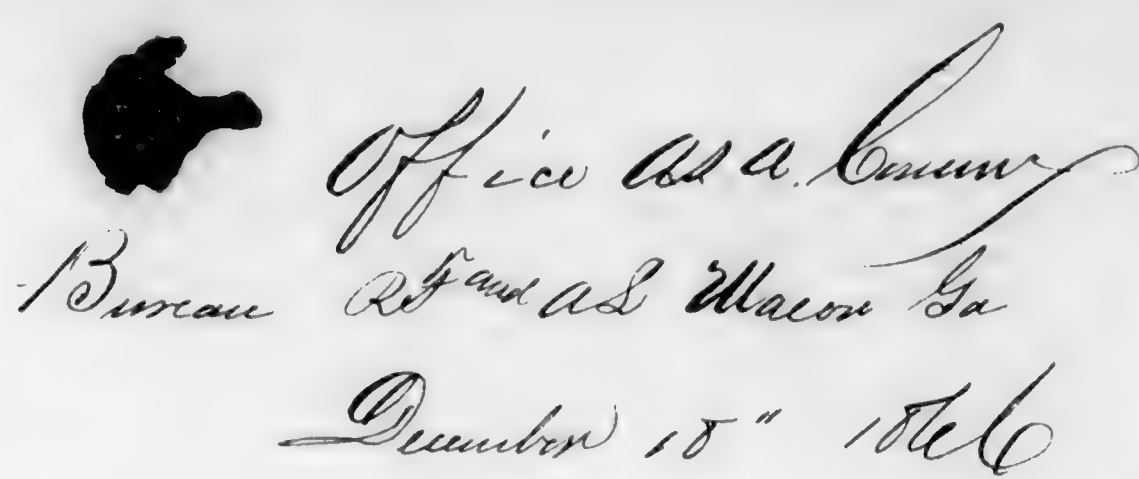 Office A.S.A. Commr
Bureau R F and A L Macon Ga
December 18" 1866